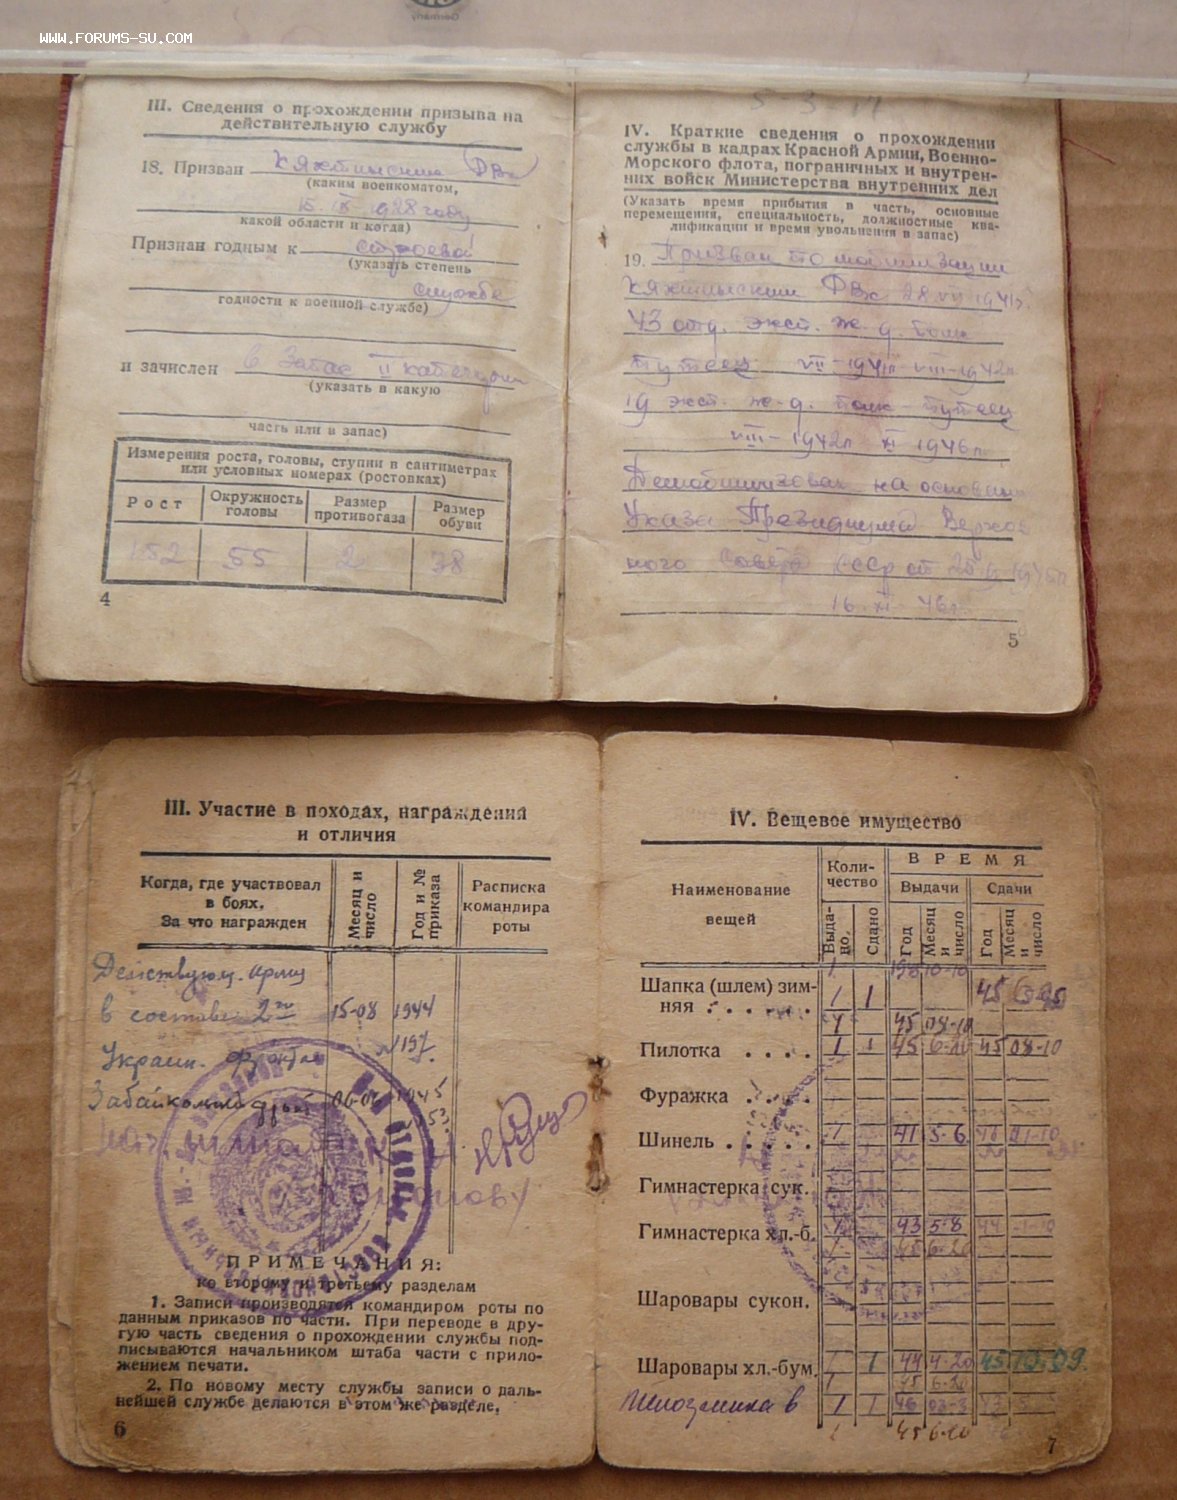 WWW.FORUMS-SU.COM
Germany
III. Сведения о прохождении призыва на
действительную службу
18. Призван Кяхтинским РВк
(каким военкоматом,
15. IX - 1928 году
какой области и когда)
Признан годным к строевой
(указать степень
службе
годности к военной службе)
и зачислен в запас II категории
(указать в какую
часть или в запас)
Измерения роста, головы, ступни в сантиметрах
или условных номерах (ростовках)
Рост
Окружность
головы
Размер
противогаза
Размер
обуви
152 55 2 38
4
IV. Краткие сведения о прохождении
службы в кадрах Красной Армии, Военно-
Морского флота, пограничных и внутрен-
них войск Министерства внутренних дел
(Указать время прибытия в часть, основные
перемещения, специальность, должностные ква-
лификации и время увольнения в запас)
19. Призван по мобилизации
Кяхтинским РВк 28 VII 1941г.
43 отд. экс. ж.д. полк
путеец VII-1941г-VIII-1942г.
19 экс. ж-д. полк-путеец
VIII-1942г. XI 1946г.
Демобилизован на основан
Указа Президиума Верхов
ного Совета СССР от
16. XI- 46г.
5
III. Участие в походах, награждений
и отличия
Когда, где участвовал
в боях.
За что награжден
Месяц и
число
Год и №
приказа
Расписка
командира
роты
Действующ. армии
в составе 2го 15-08 1944
Украин. фронта №197.
Забайкальский фронт 1945
53.
ПРИМЕЧАНИЯ:
ко второму и третьему разделам
1. Записи производятся командиром роты по
данным приказов по части. При переводе в дру-
гую часть сведения о прохождении службы под-
писываются начальником штаба части с прило-
жением печати.
2. По новому месту службы записи о даль-
нейшей службе делаются в этом же разделе.
6
IV. Вещевое имущество
Наименование
вещей
Коли-
чество
ВРЕМЯ
Выдачи
Сдачи
Выда-
но.
Сдано
Год
Месяц
и
число
Год
Месяц
и
число
Шапка (шлем) зим-
няя . . . . . 1 1 45
1 45 08-10
Пилотка . . . . 1 1 45 6-20 45 08-10
Фуражка . . . .
Шинель . . . . . 1 41 5-6
Гимнастерка сук.
Гимнастерка хл.-б. 1 43 5-8 44
45 6-20
Шаровары сукон.
Шаровары хл.-бум. 1 1 44 4-20 45 10.09
1 45 6-20
1 1 46
1 45 6-20
7